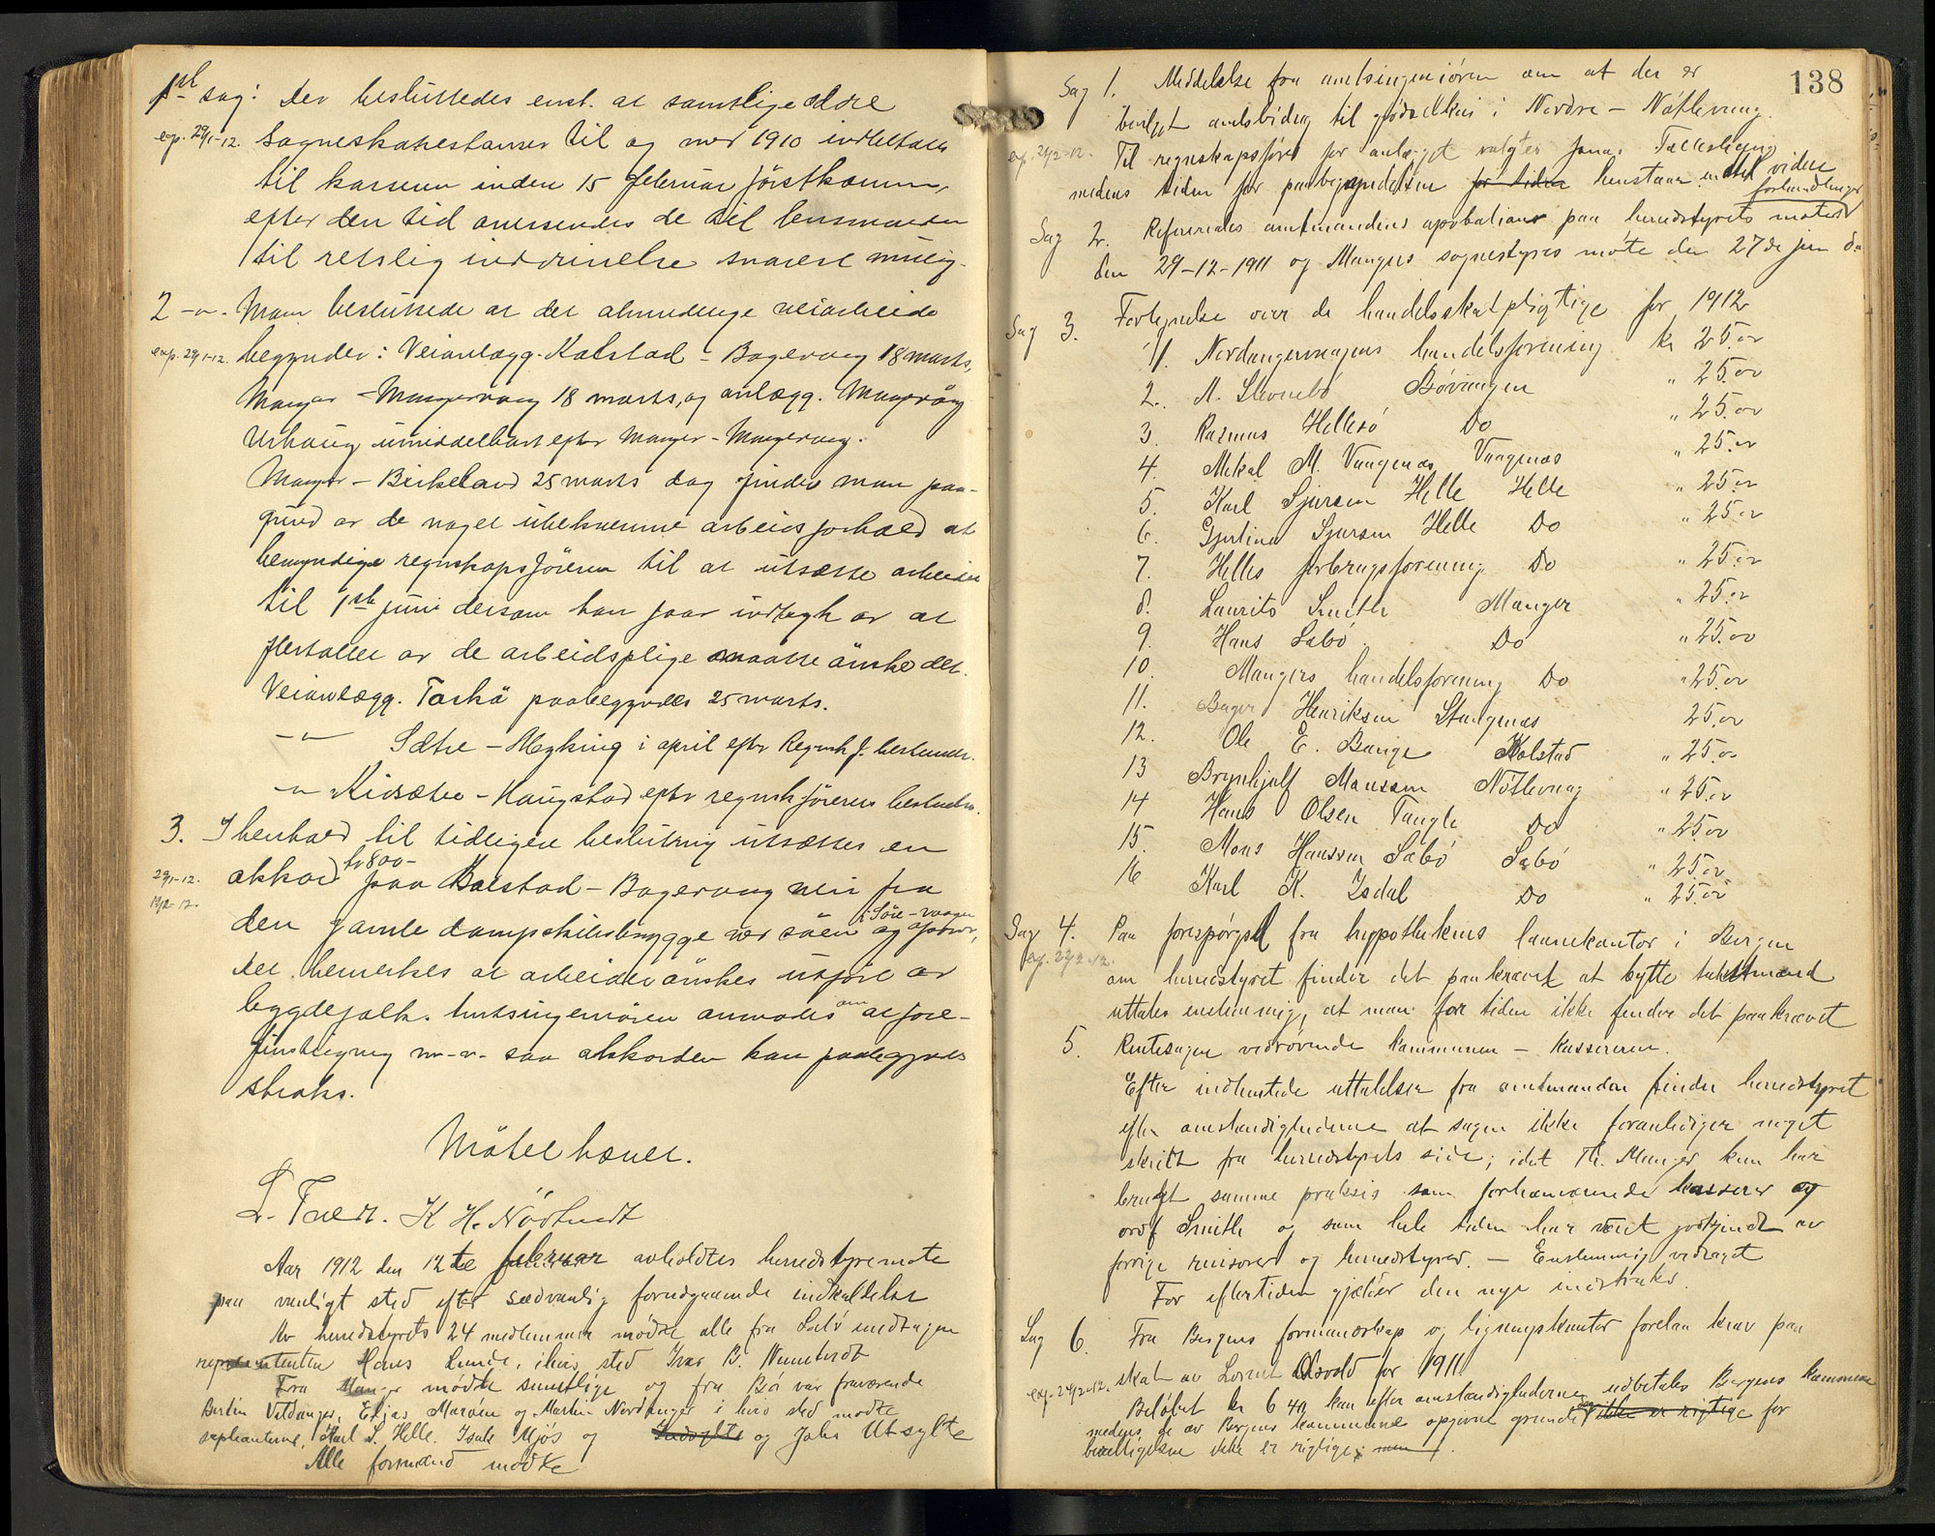 1ste sag: Der besluttedes enst. at samtlige ældre
exp. 29/1-12. Sogneskatrestanser til og med 1910 indbetales
til kasseren inden 15 februar förstkomm,
efter den tid oversendes de til lensmanden
til retslig inddrivelse snarest mulig.
2 -"- Man besluttede at det almindelige veiarbeide
exp. 29/1-12. begynder: Veianlægg. Kolstad - Bogevaag 18 marts,
Manger - Mangervaag 18 marts, og anlægg.
Urhaug umiddelbart efter Manger - Mangervaag.
Manger - Birkeland 25 marts dog finder man paa-
grund av de noget ubekvemme arbeidsforhold at
bemyndige regnskapsföreren til at utsætte arbeidet
til 1ste juni dersom han faar indtryk av at
flertallet av de arbeidsplige maatte önske det.
Veianlægg. Toskö paabegyndes 25 marts.
-"- Sætre - Myking i april efter Regnsk f. bestemm.
-"- Kidsætre - Haugstad efter regnskföreren bestem.
3. I henhold til tidligere beslutning utsættes en
29/1-12. akkord kr 800- paa Kolstad - Bogevaag vei fra
den gamle dampskibsbrygge ved söen i Söre-vaagen og opover,
Det bemerkes at arbeidet önskes utfört av
bygdefolk. Amtsingeniören anmodes om at fore-
finstikning m. v. saa akkorden kan paabegyndes
straks.
Mötet hævet.
L. Tveit. K H. Nödtvedt
Aar 1912 den 12te februar avholdtes herredstyremöte
paa vanligt sted efter sædvanlig forudgaaende indkaldelse
Av herredstyrets 24 medlemmer mödte alle fra Sæbö undtagen
representanten Hans Lunde, i hvis sted Ivar B.
Fra Manger mödte samtlige og fra Bö var fraværende
Bertin Vetdanger, Elias Maröen og Martin Nordanger i hvis sted mödte
suplianterne, Karl S. Helle. Isak Mjös og og Johs Utsylte
Alle formænd mödte
138
Sag 1. Meddelelse fra amtsingeniören om at der er
bevilget amtsbidrag til godselskur i Nordre - Nötlevaag.
Til regnskapsförer for anlægget valgtes Jonas
medens tiden for paabegyndelsen for tiden henstaar indtil videre
forhandlinger
Sag 2. Refereredes amtmandens aprobationer paa herredstyrets möter
den 29-12-1911 og Mangers sognestyres möte den 27de jan
Sag 3. Fortegnelse over de handelsskatpligtige for 1912
1. Nordangervaagens handelsforening kr 25.00
2. A. Skornebö Bövaagen " 25.00
3. Rasmus Hellesö Do " 25.00
4. Mikal M. Vaagenes Vaagenes " 25.00
5. Karl Sjursen Helle Helle " 25.00
6. Gjertine Sjursen Helle Do " 25.00
7. Helles forbrugsforening Do " 25.00
8. Laurits Smith Manger " 25.00
9. Hans Sæbö Do " 25.00
10. Mangers handelsforening Do " 25.00
11. Henriksen Stangenes 25.00
12. Ole E. Bauge Kolstad " 25.00
13 Brynhjulf Monssen Nötlevaag " 25.00
14 Hans Olsen Tangle Do " 25.00
15. Mons Hanssen Sæbö Sæbö " 25.00
16 Karl K. Isdal Do " 25.00
Sag 4. Paa forespörgsel fra hypothekens laanekontor i Bergen
om herredstyret finder det paakrævet at bytte takstmænd
uttales enstemmig, at man for tiden ikke finder det paakrævet
5. Rentesagen vedrörende kommunen - kassereren.
Efter indhentede uttalelser fra amtmanden finder herredstyret
efter omstændighederne at sagen ikke foranlediger noget
skritt fra herredstyrets side; idet Th. Manger kun har
brukt samme praksis som forhenværende kasserer og
ordf Smith og som hele tiden har været godkjendt av
forrige revisorer og herredstyrer. - Enstemmig vedtaget
For eftertiden gjælder den nye instruks.
Sag 6. Fra Bergens formandskap og ligningskontor forelaa krav paa
exp. 24/2-12. skat av Lorent Osvold for 1911
Belöbet kr 6 40, kan efter omstændighederne udbetales Bergens kommune
medens de av Bergens kommune opgivne grunde ikke er rigtige for
bevilligelsen ikke er rigtige; men